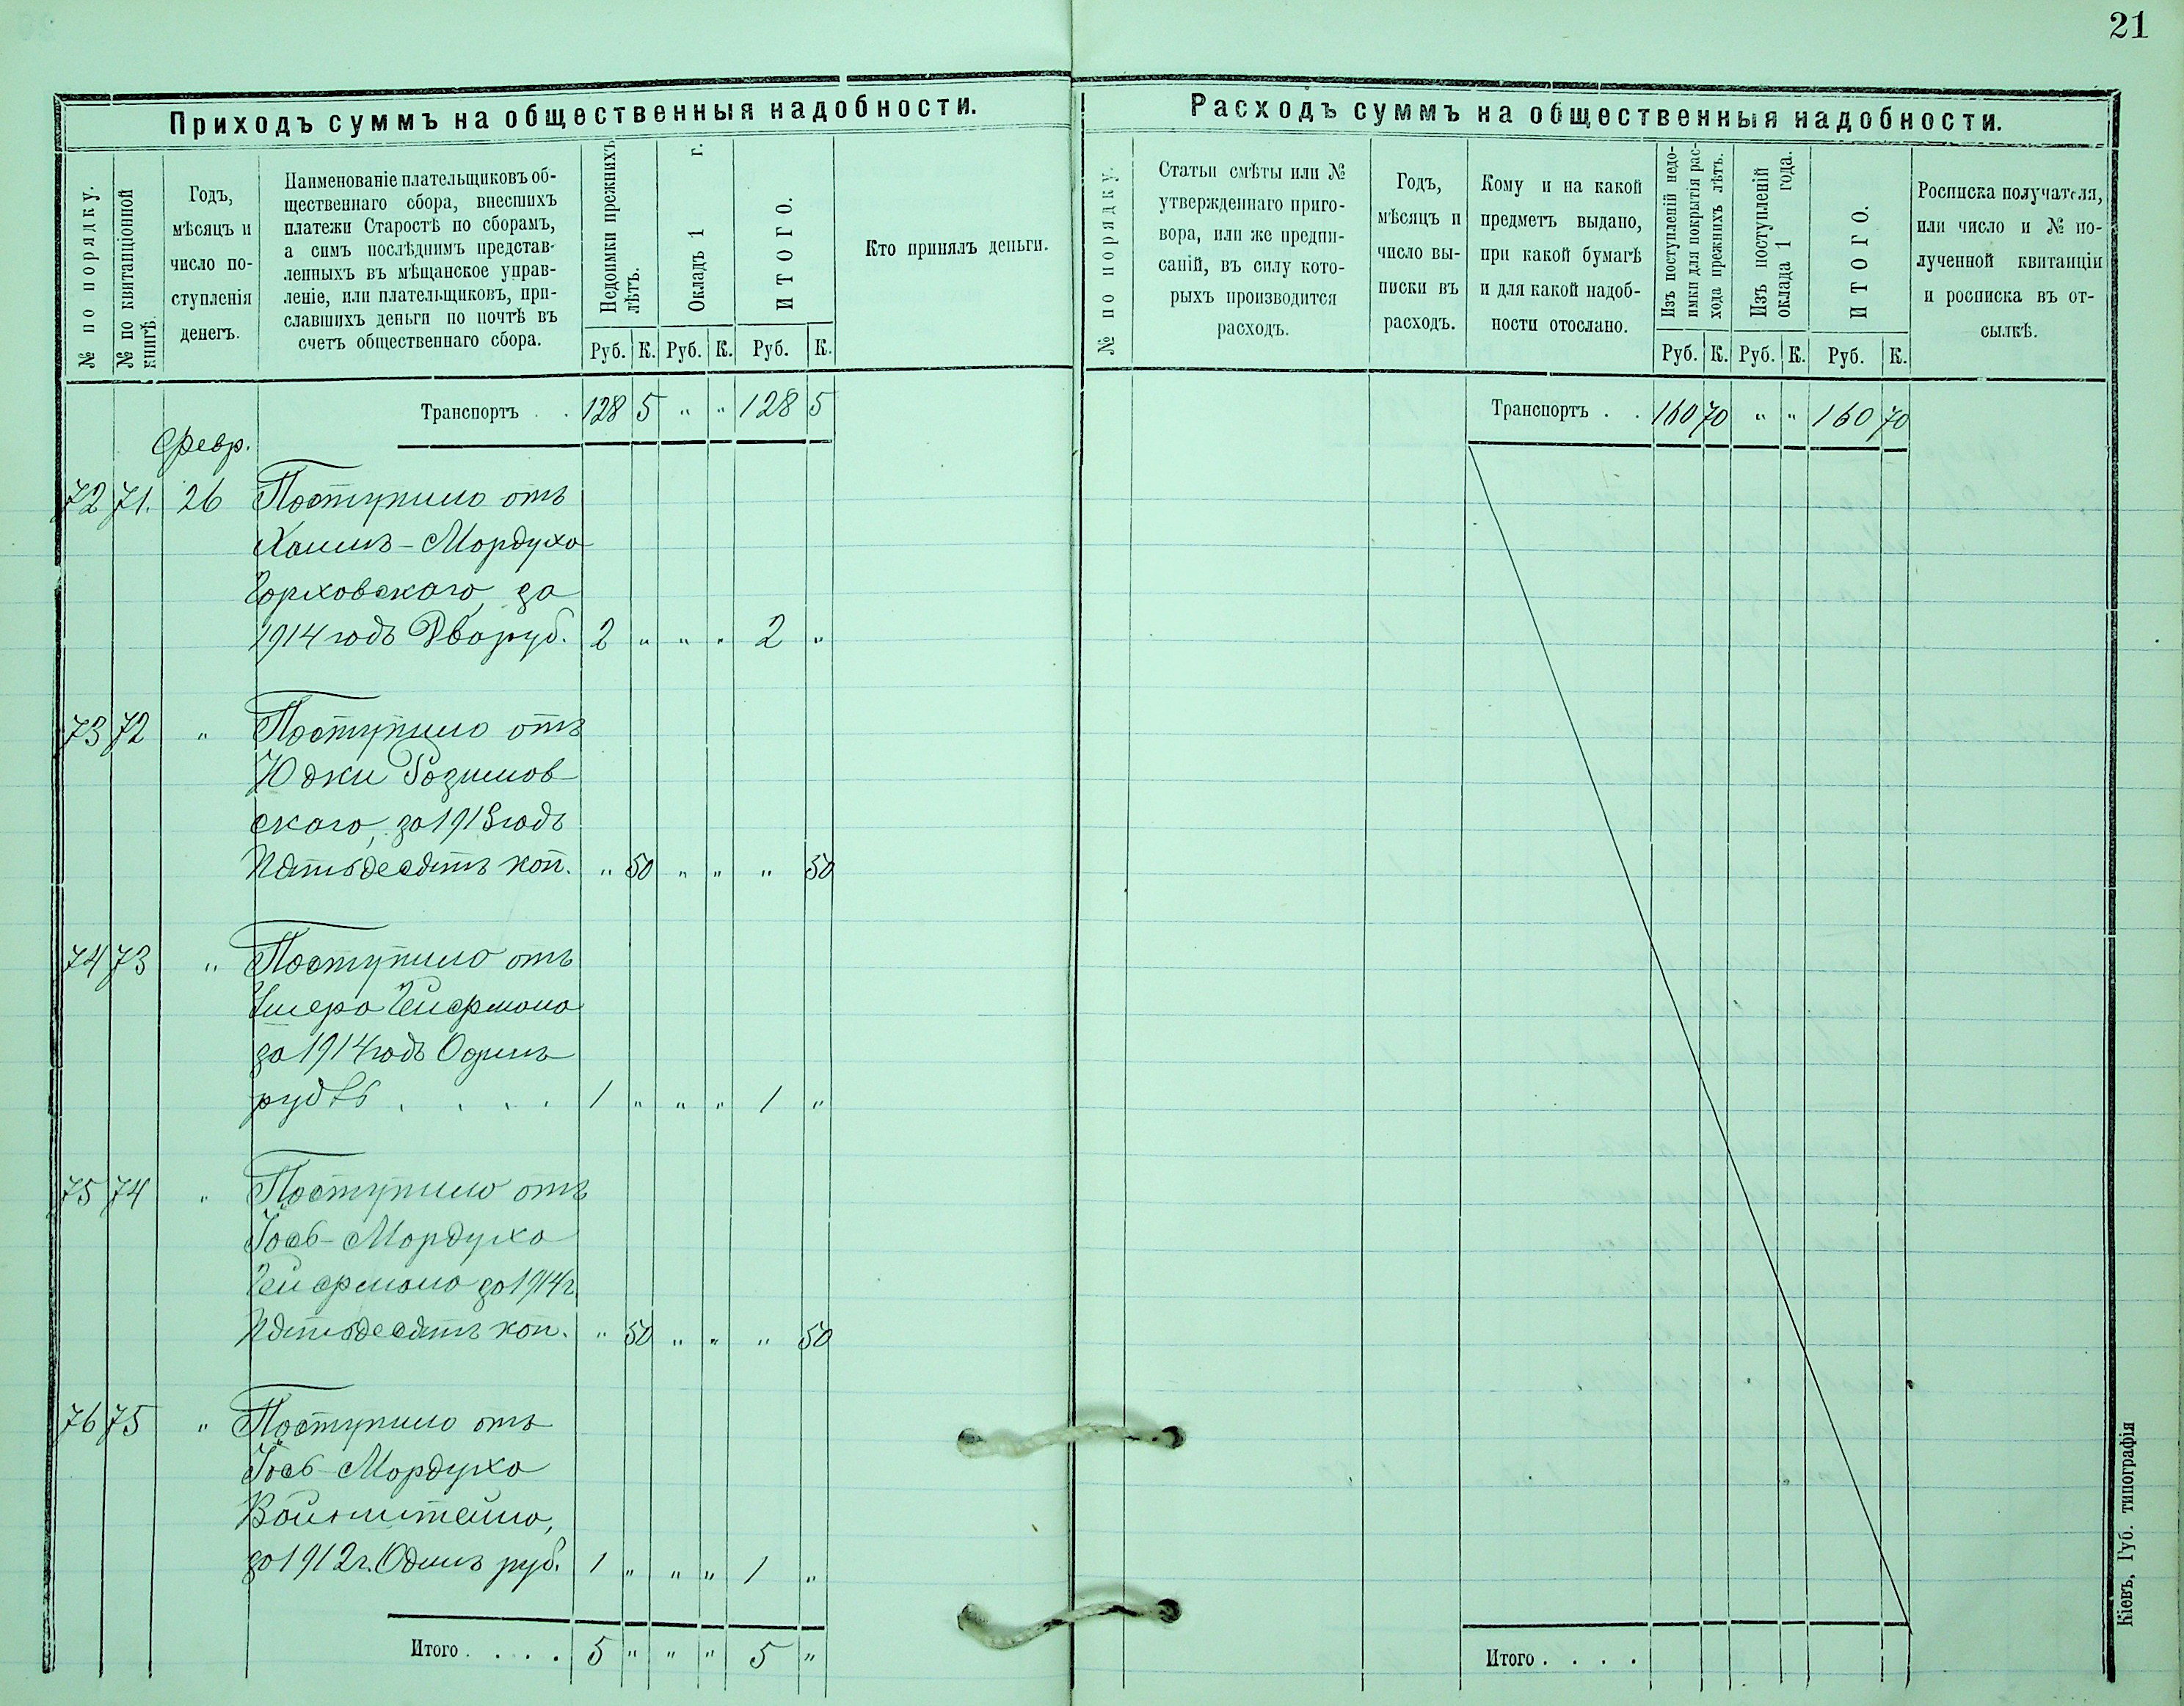 21
Приходъ суммъ на общественныя надобности.
№ по порядку.
№ по квитанціонной
книгѣ.
Годъ,
мѣсяцъ и
число по-
ступленія
денегъ.
Наименованіе плательщиковъ об-
щественнаго сбора, внесшихъ
платежи Старостѣ по сборамъ,
а симъ послѣднимъ представ-
ленныхъ въ мѣщанское управ-
леніе, или плательщиковъ, при-
славшихъ деньги по почтѣ въ
счетъ общественнаго сбора.
Недоимки прежнихъ
лѣтъ.
Окладъ 1 г.
ИТОГО.
Руб. К. Руб. К. Руб. К.
Кто принялъ деньги.
Транспортъ . . 128 5 " " 128 5
Февр.
72 71. 26 Поступило отъ
Хаимъ-Мордуха
за
1914 годъ Два руб. 2 " " " 2 "
73 72 " Поступило отъ
Юдки Розумов-
скаго, за 1913 годъ
Пятьдесятъ коп. " 50 " " " 50
74 73 " Поступило отъ
за 1914 годъ Одинъ
рубль . . . . 1 " " " 1 "
75 74 " Поступило отъ
Іосъ-Мордуха
за 1914 г.
Пятьдесятъ коп. " 50 " " " 50
76 75 " Поступило отъ
Іосъ-Мордуха
Вайнштейна,
за 1912 г. Одинъ руб. 1 " " " 1 "
Итого . . . . 5 " " " 5 "
Расходъ суммъ на общественныя надобности.
№ по порядку.
Статьи смѣты или №
утвержденнаго приго-
вора, или же предпи-
саній, въ силу кото-
рыхъ производится
расходъ.
Годъ,
мѣсяцъ и
число вы-
писки въ
расходъ.
Кому и на какой
предметъ выдано,
при какой бумагѣ
и для какой надоб-
ности отослано.
Изъ поступленій недо-
имки для покрытія рас-
хода прежнихъ лѣтъ.
Изъ поступленій
оклада 1 года.
ИТОГО.
Руб. К. Руб. К. Руб. К.
Росписка получателя,
или число и № по-
лученной квитанціи
и росписка въ от-
сылкѣ.
Транспортъ . . 160 70 " " 160 70
Итого . . . .
Кіевъ, Губ. типографія